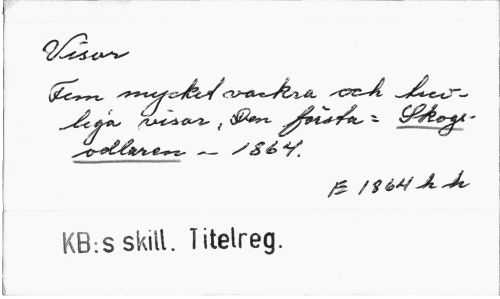 Visor
Fem mycket vackra och trev-
liga visor, Den första = Skogs-
odlaren – 1864.
E 1864 h h
KB:s skill. Titelreg.